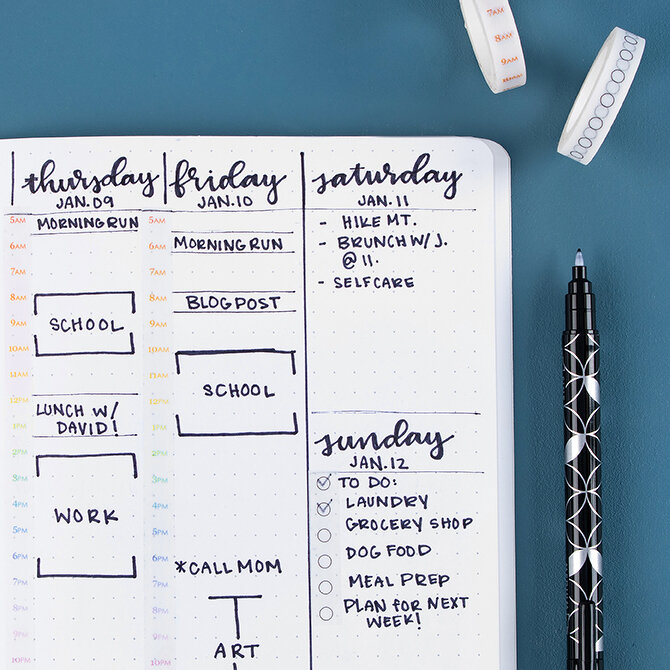 7AM
8AM
9AM
10AM
thursday
JAN.09
5AM
MORNING RUN
6AM
7AM
8AM
SCHOOL
9AM
10AM
11AM
12PM
LUNCH W/
1PM
DAVID!
2PM
3PM
4PM
WORK
5PM
6PM
7PM
8PM
9PM
10PM
friday
JAN.10
5AM
6AM
MORNING RUN
7AM
8AM
BLOG POST
9AM
10AM
11AM
SCHOOL
12PM
1PM
2PM
3PM
4PM
5PM
6PM
*CALL MOM
7PM
8PM
9PM
ART
10PM
saturday
JAN.11
- HIKE MT.
- BRUNCH W/ J.
@ 11.
- SELFCARE
sunday
JAN.12
TO DO:
LAUNDRY
GROCERY SHOP
DOG FOOD
MEAL PREP
PLAN FOR NEXT
WEEK!